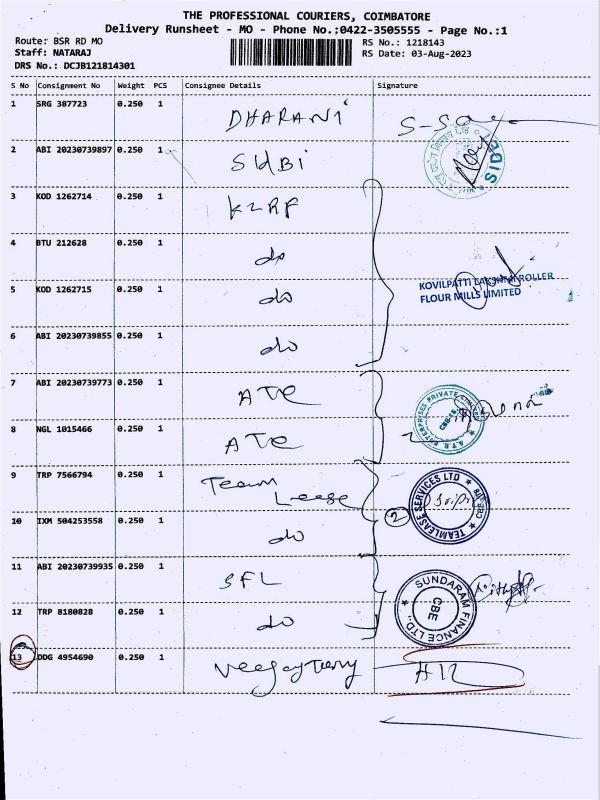 THE PROFESSIONAL COURIERS, COIMBATORE
Delivery Runsheet - MO - Phone No.;0422-3505555 - Page No.:1
Route: BSR RD MO
Staff: NATARAJ
DRS No.: DCJB121814301
RS No.: 1218143
RS Date: 03-Aug-2023
S No Consignment No Weight PCS Consignee Details Signature
1 SRG 387723 0.250 1 DHARANI
2 ABI 20230739897 0.250 1 SIDBI
SIDBI
3 KOD 1262714 0.250 1 KLRF
4 BTU 212628 0.250 1 do
5 KOD 1262715 0.250 1 do
KOVILPATTI LAKSHMI ROLLER
FLOUR MILLS LIMITED
6 ABI 20230739855 0.250 1 do
7 ABI 20230739773 0.250 1 ATE
8 NGL 1015466 0.250 1 ATE
9 TRP 7566794 0.250 1 Team
Lease
TEAMLEASE SERVICES LTD
2
10 IXM 504253558 0.250 1 do
11 ABI 20230739935 0.250 1 SFL
SUNDARAM FINANCE LTD.,
CBE
12 TRP 8180828 0.250 1 do
13 DDG 4954690 0.250 1